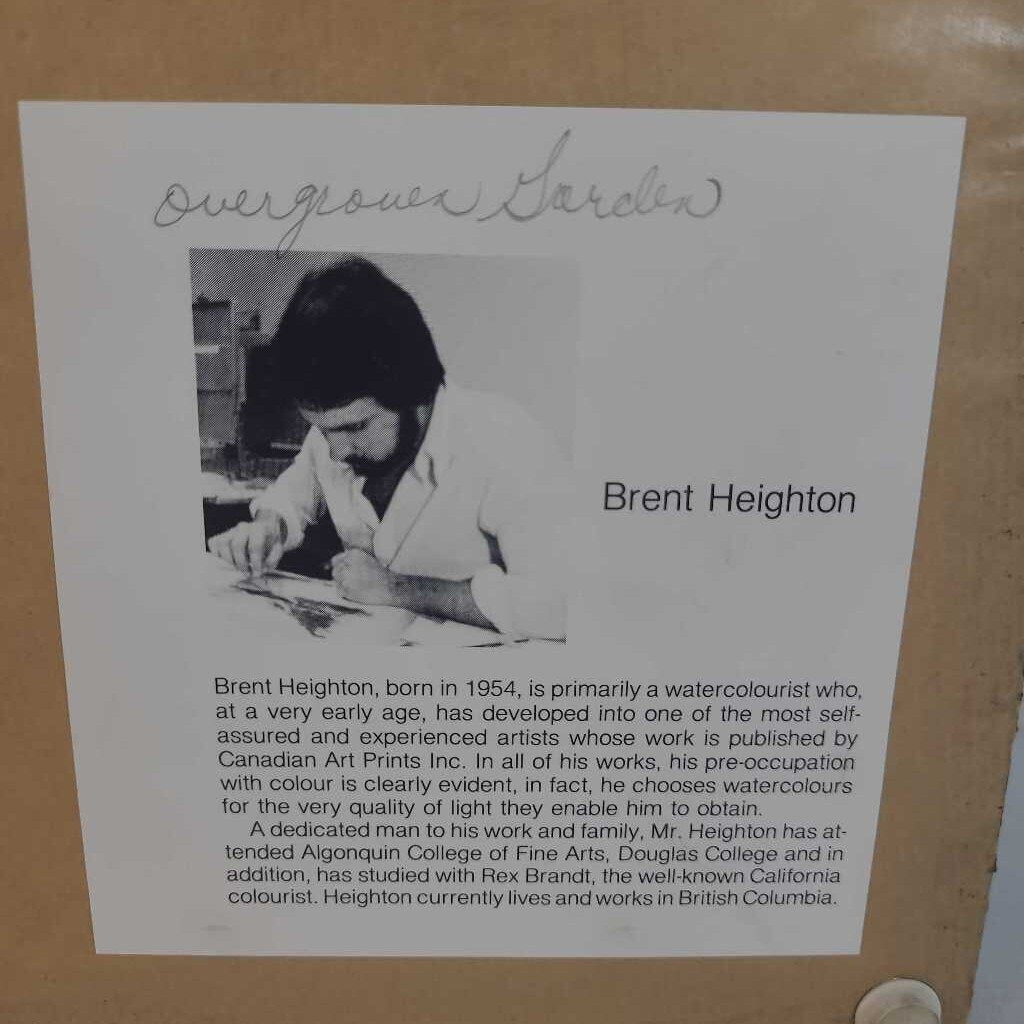 Overgrown Garden
Brent Heighton
Brent Heighton, born in 1954, is primarily a watercolourist who,
at a very early age, has developed into one of the most self-
assured and experienced artists whose work is published by
Canadian Art Prints Inc. In all of his works, his pre-occupation
with colour is clearly evident, in fact, he chooses watercolours
for the very quality of light they enable him to obtain.
A dedicated man to his work and family, Mr. Heighton has at-
tended Algonquin College of Fine Arts, Douglas College and in
addition, has studied with Rex Brandt, the well-known California
colourist. Heighton currently lives and works in British Columbia.